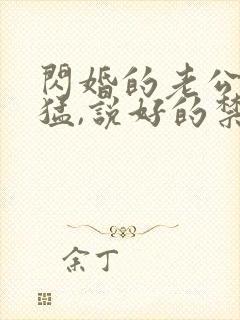 閃婚的老公
猛,說好的禁
余丁